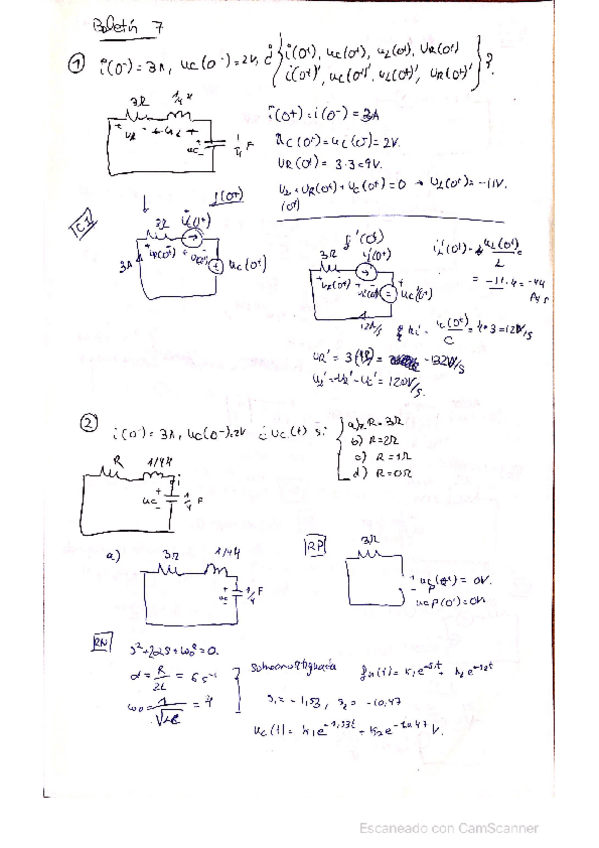 Boletín 7
① i(0⁻) = 3A, uc(0⁻) = 2V, ¿ { i(0⁺), uc(0⁺), uL(0⁺), UR(0⁺)
i(0⁺)', uc(0⁺)', uL(0⁺)', UR(0⁺)' } ?
3Ω
+ UR - + UL +
uc
1/4 F
i(0+) = i(0⁻) = 3A
uc(0⁺) = uc(0⁻) = 2V.
UR(0⁺) = 3·3 = 9V.
UL + UR(0⁺) + Uc(0⁺) = 0 → UL(0⁺) = -11V.
(0⁺)
C.I
f(0+)
3Ω
3A
+ UR(0⁺) -
uc(0⁺)
f'(0⁺)
3Ω
uc'(0⁺)
12A/s
iL'(0⁺) = uL(0⁺)/L =
= -11·4 = -44
A/s
= 4·3 = 12V/s
UR' = -132V/s
UL' = -UR' - Uc' = 120V/s.
② i(0⁻) = 3A, uc(0⁻) = 2V ¿ uc(t) si { a) R = 3Ω
b) R = 2Ω
c) R = 1Ω
d) R = 0Ω
R 1/4H
i
uc
1/4 F
a) 3Ω 1/4H
uc
1/4 F
RP
3Ω
ucp(0⁺) = 0V.
RN
s² + 2αs + ω₀² = 0
α = R/2L = 6 s⁻¹
ω₀ = 1/√LC = 4
Sobreamortiguada
s₁ = -1,53, s₂ = -10,47
uc(t) = k₁e^-1,53t + k₂e^-10,47 V.
Escaneado con CamScanner